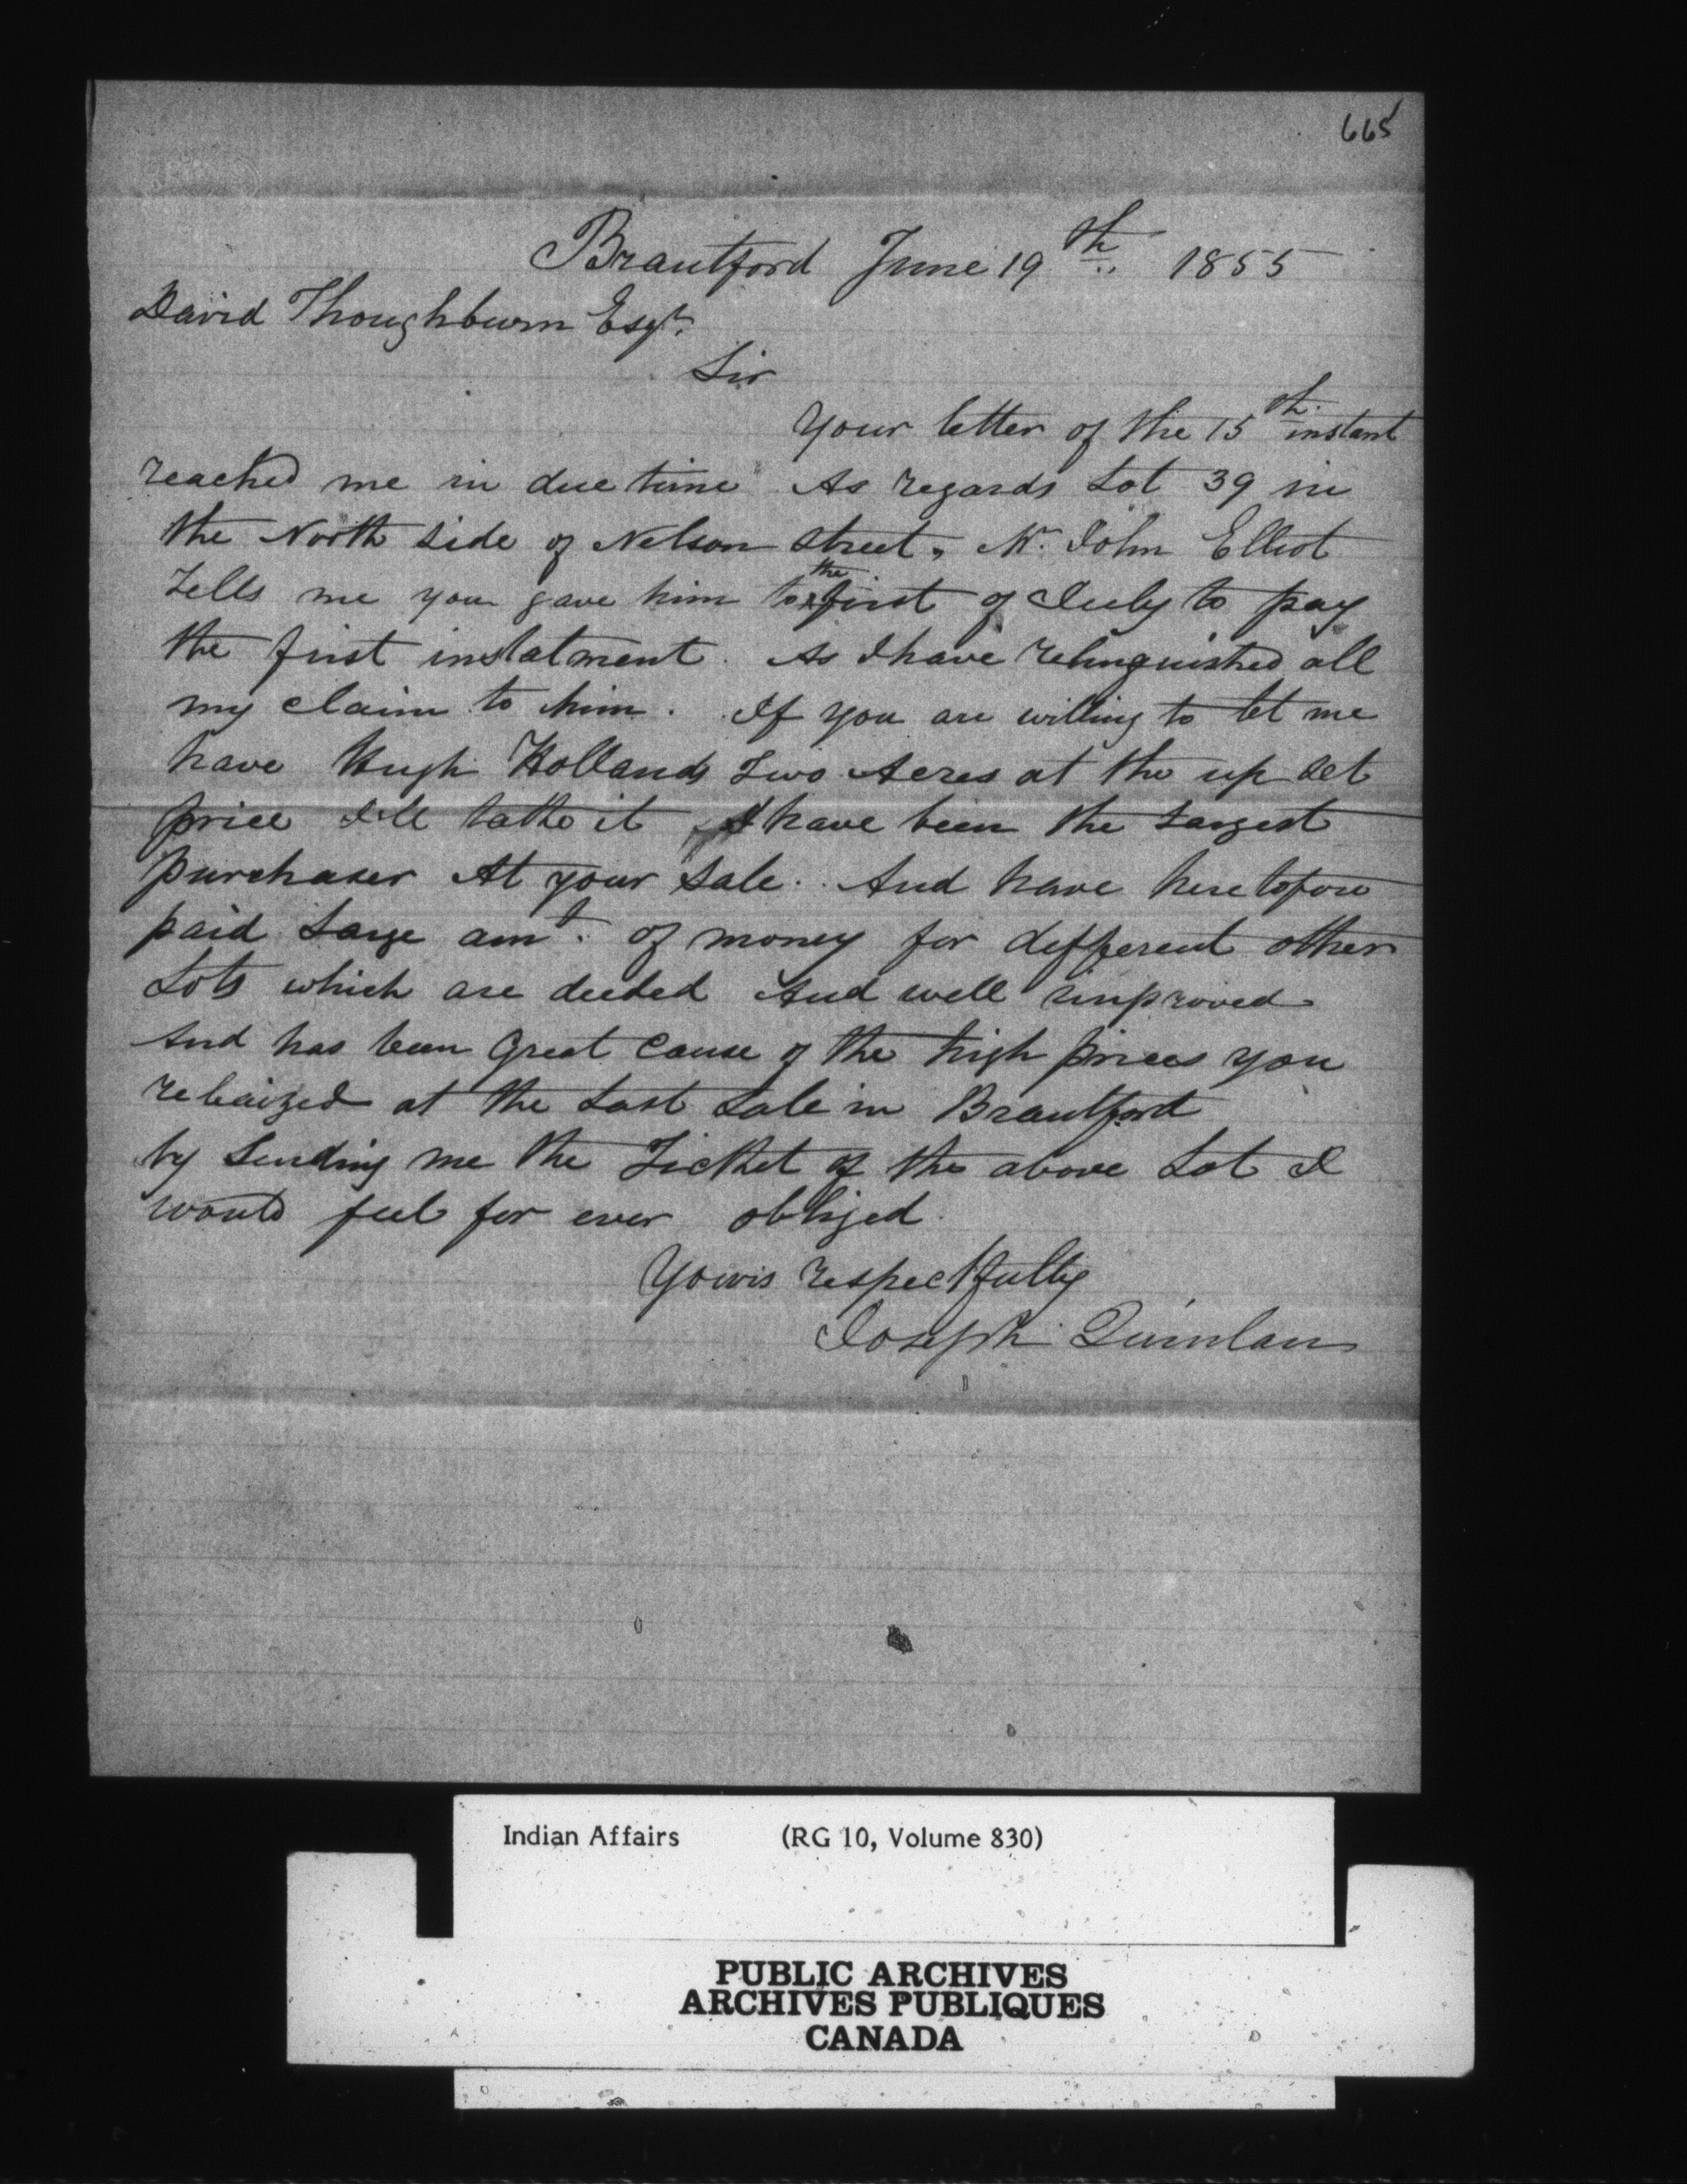 665
Brantford June 19th 1855
David Thoughburn Esqr.
Sir
Your letter of the 15th instant
reached me in due time As regards Lot 39 in
the North side of Nelson street, Mr. John Elliot
tells me you gave him to the first of July to pay
the first instatment. As I have relinguished all
my claim to him. If you are willing to let me
have Hugh Hollands Two Acres at the up set
price I'll take it I have been the Largest
purchaser At your Sale. And have heretofore
paid Large amt. of money for defferent other
Lots which are deeded And well improved
And has been Great Cause of the high prices you
releaized at the Last Sale in Brantford
by Sending me the Ticket of the above Lot I
would feel for ever obliged
Yours respectfully
Joseph Quinlan
Indian Affairs (RG 10, Volume 830)
PUBLIC ARCHIVES
ARCHIVES PUBLIQUES
CANADA